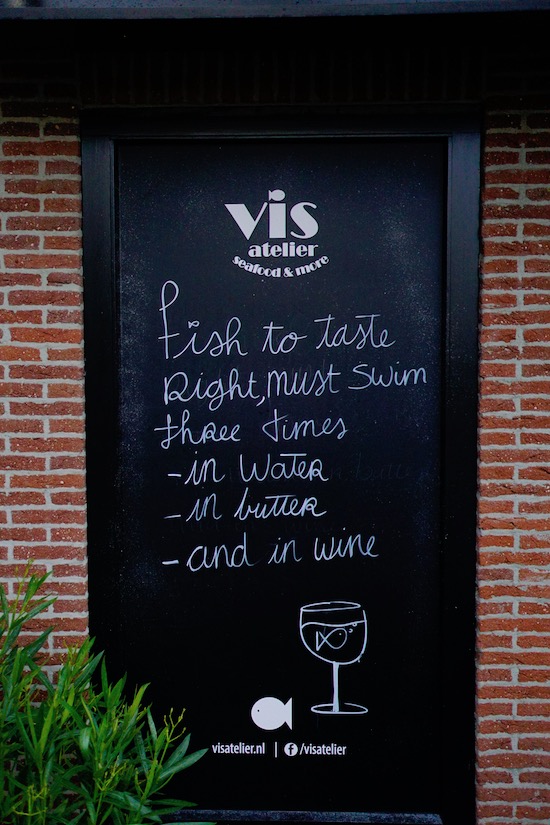 vis
atelier
seafood & more
Fish to taste
Right, must swim
three times
- in water
- in butter
- and in wine
visatelier.nl | f/visatelier